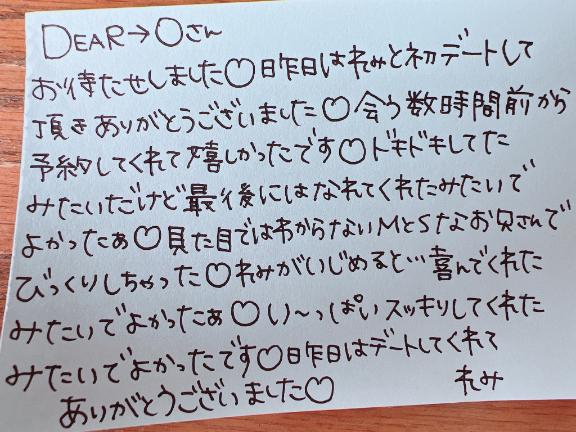 DEAR→〇さん
お待たせしました♡昨日はれみと初デートして
頂きありがとうございました♡会う数時間前から
予約してくれて嬉しかったです♡ドキドキしてた
みたいだけど最後にはなれてくれたみたいで
よかったぁ♡見た目ではわからないMとSなお兄さんで
びっくりしちゃった♡れみがいじめると…喜んでくれた
みたいでよかったぁ♡い〜っぱいスッキリしてくれた
みたいでよかったです♡昨日はデートしてくれて
ありがとうございました♡ れみ